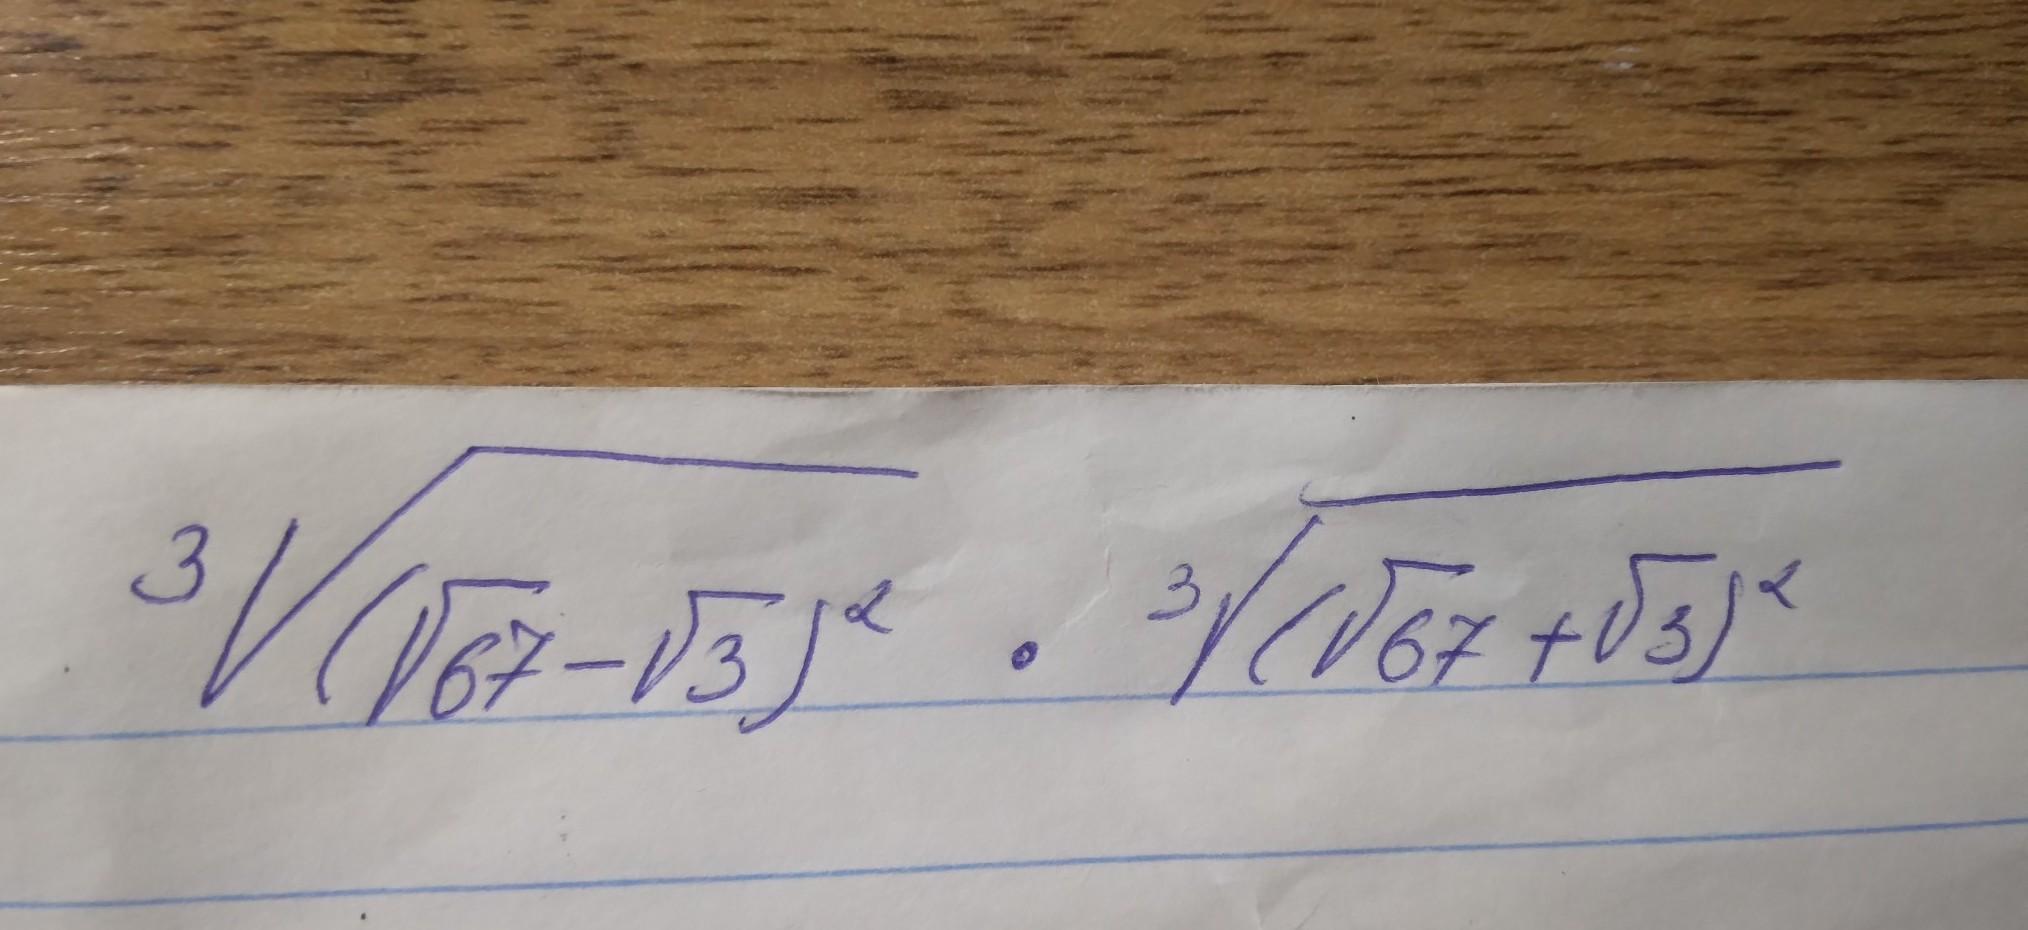 ∛(√67 − √3)² · ∛(√67 + √3)²